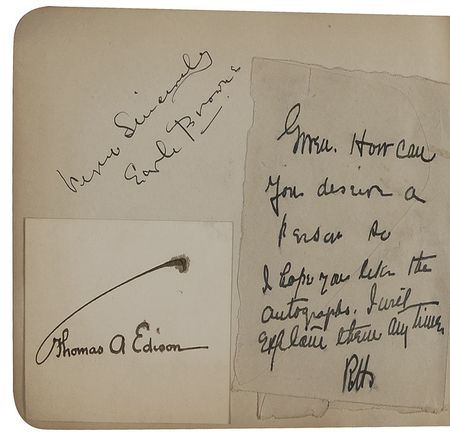 Very Sincerely
Earle Browne
Thomas A Edison
Gwen. How can
you desire a
person so
I hope you like the
autographs. I will
explain them any time.
RHs